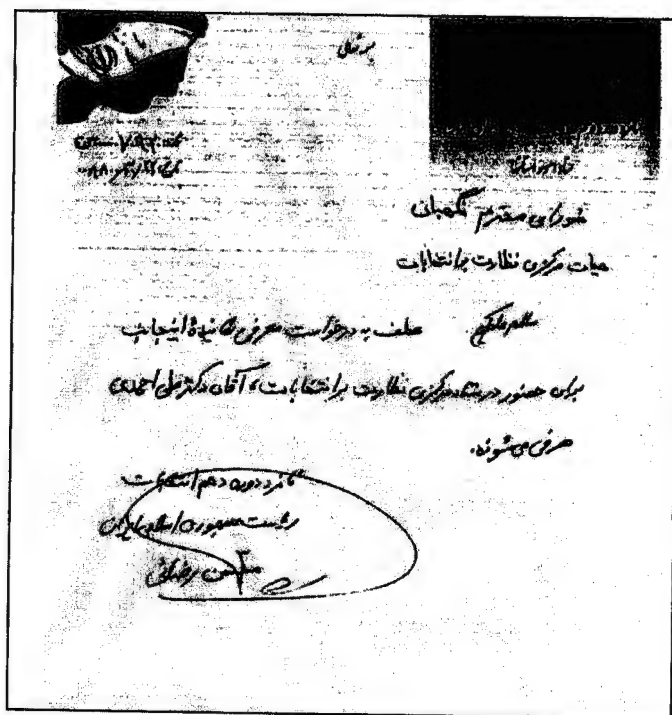 بسمه تعالی
شورای محترم نگهبان
هیات مرکزی نظارت بر انتخابات
سلام علیکم عطف به درخواست معرفی نماینده اینجانب
برای حضور در ستاد مرکزی نظارت بر انتخابات، آقای دکتر علی احمدی
معرفی می‌شوند.
نامزد دوره دهم انتخابات
ریاست جمهوری اسلامی ایران
محسن رضائی